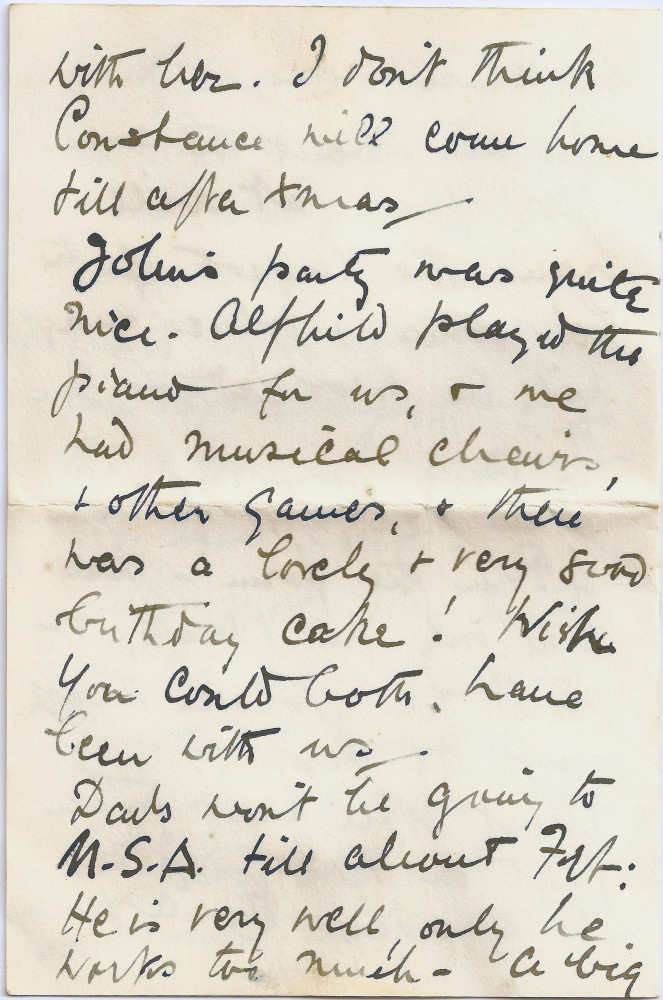 with her. I don't think
Constance will come home
till after Xmas —
John's party was quite
nice. Alfhild played the
piano for us, & we
had musical chairs,
& other games, & there
was a lovely & very good
birthday cake! Wish
you could both have
been with us —
Dads won't be going to
U.S.A. till about Feb:
He is very well, only he
works too much - A big